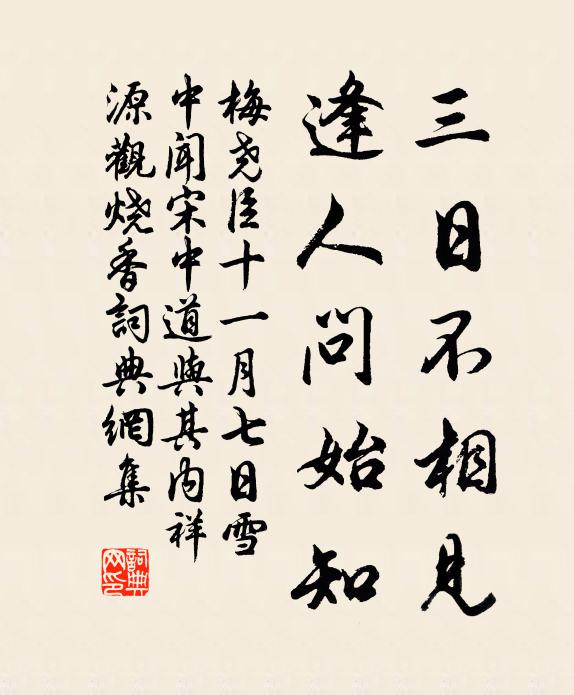 三日不相見
逢人問始知
梅尧臣十一月七日雪
中闻宋中道與其内祥
源觀烧香詞典網集
詞典网印